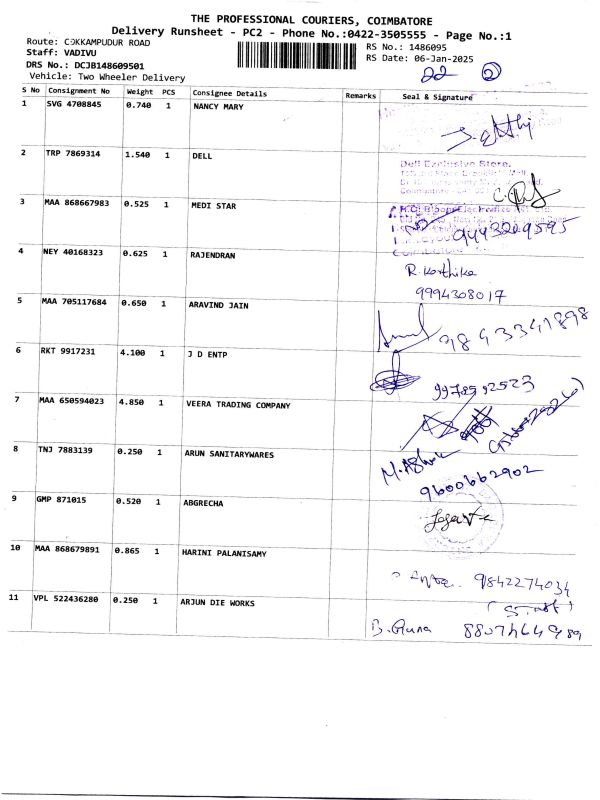 THE PROFESSIONAL COURIERS, COIMBATORE
Delivery Runsheet - PC2 - Phone No.:0422-3505555 - Page No.:1
Route: COKKAMPUDUR ROAD
RS No.: 1486095
Staff: VADIVU
RS Date: 06-Jan-2025
DRS No.: DCJB148609501
22 2
Vehicle: Two Wheeler Delivery
S No Consignment No Weight PCS Consignee Details Remarks Seal & Signature
1 SVG 4708845 0.740 1 NANCY MARY
2 TRP 7869314 1.540 1 DELL
Dell Exclusive Store.
3 MAA 868667983 0.525 1 MEDI STAR
9443209595
4 NEY 40168323 0.625 1 RAJENDRAN
R. Karthika
9994308017
5 MAA 705117684 0.650 1 ARAVIND JAIN
9843341898
6 RKT 9917231 4.100 1 J D ENTP
9978592523
7 MAA 650594023 4.850 1 VEERA TRADING COMPANY
8 TNJ 7883139 0.250 1 ARUN SANITARYWARES
M. Ashok
9600662902
9 GMP 871015 0.520 1 ABGRECHA
10 MAA 868679891 0.865 1 HARINI PALANISAMY
9842274034
11 VPL 522436280 0.250 1 ARJUN DIE WORKS
B. Guna